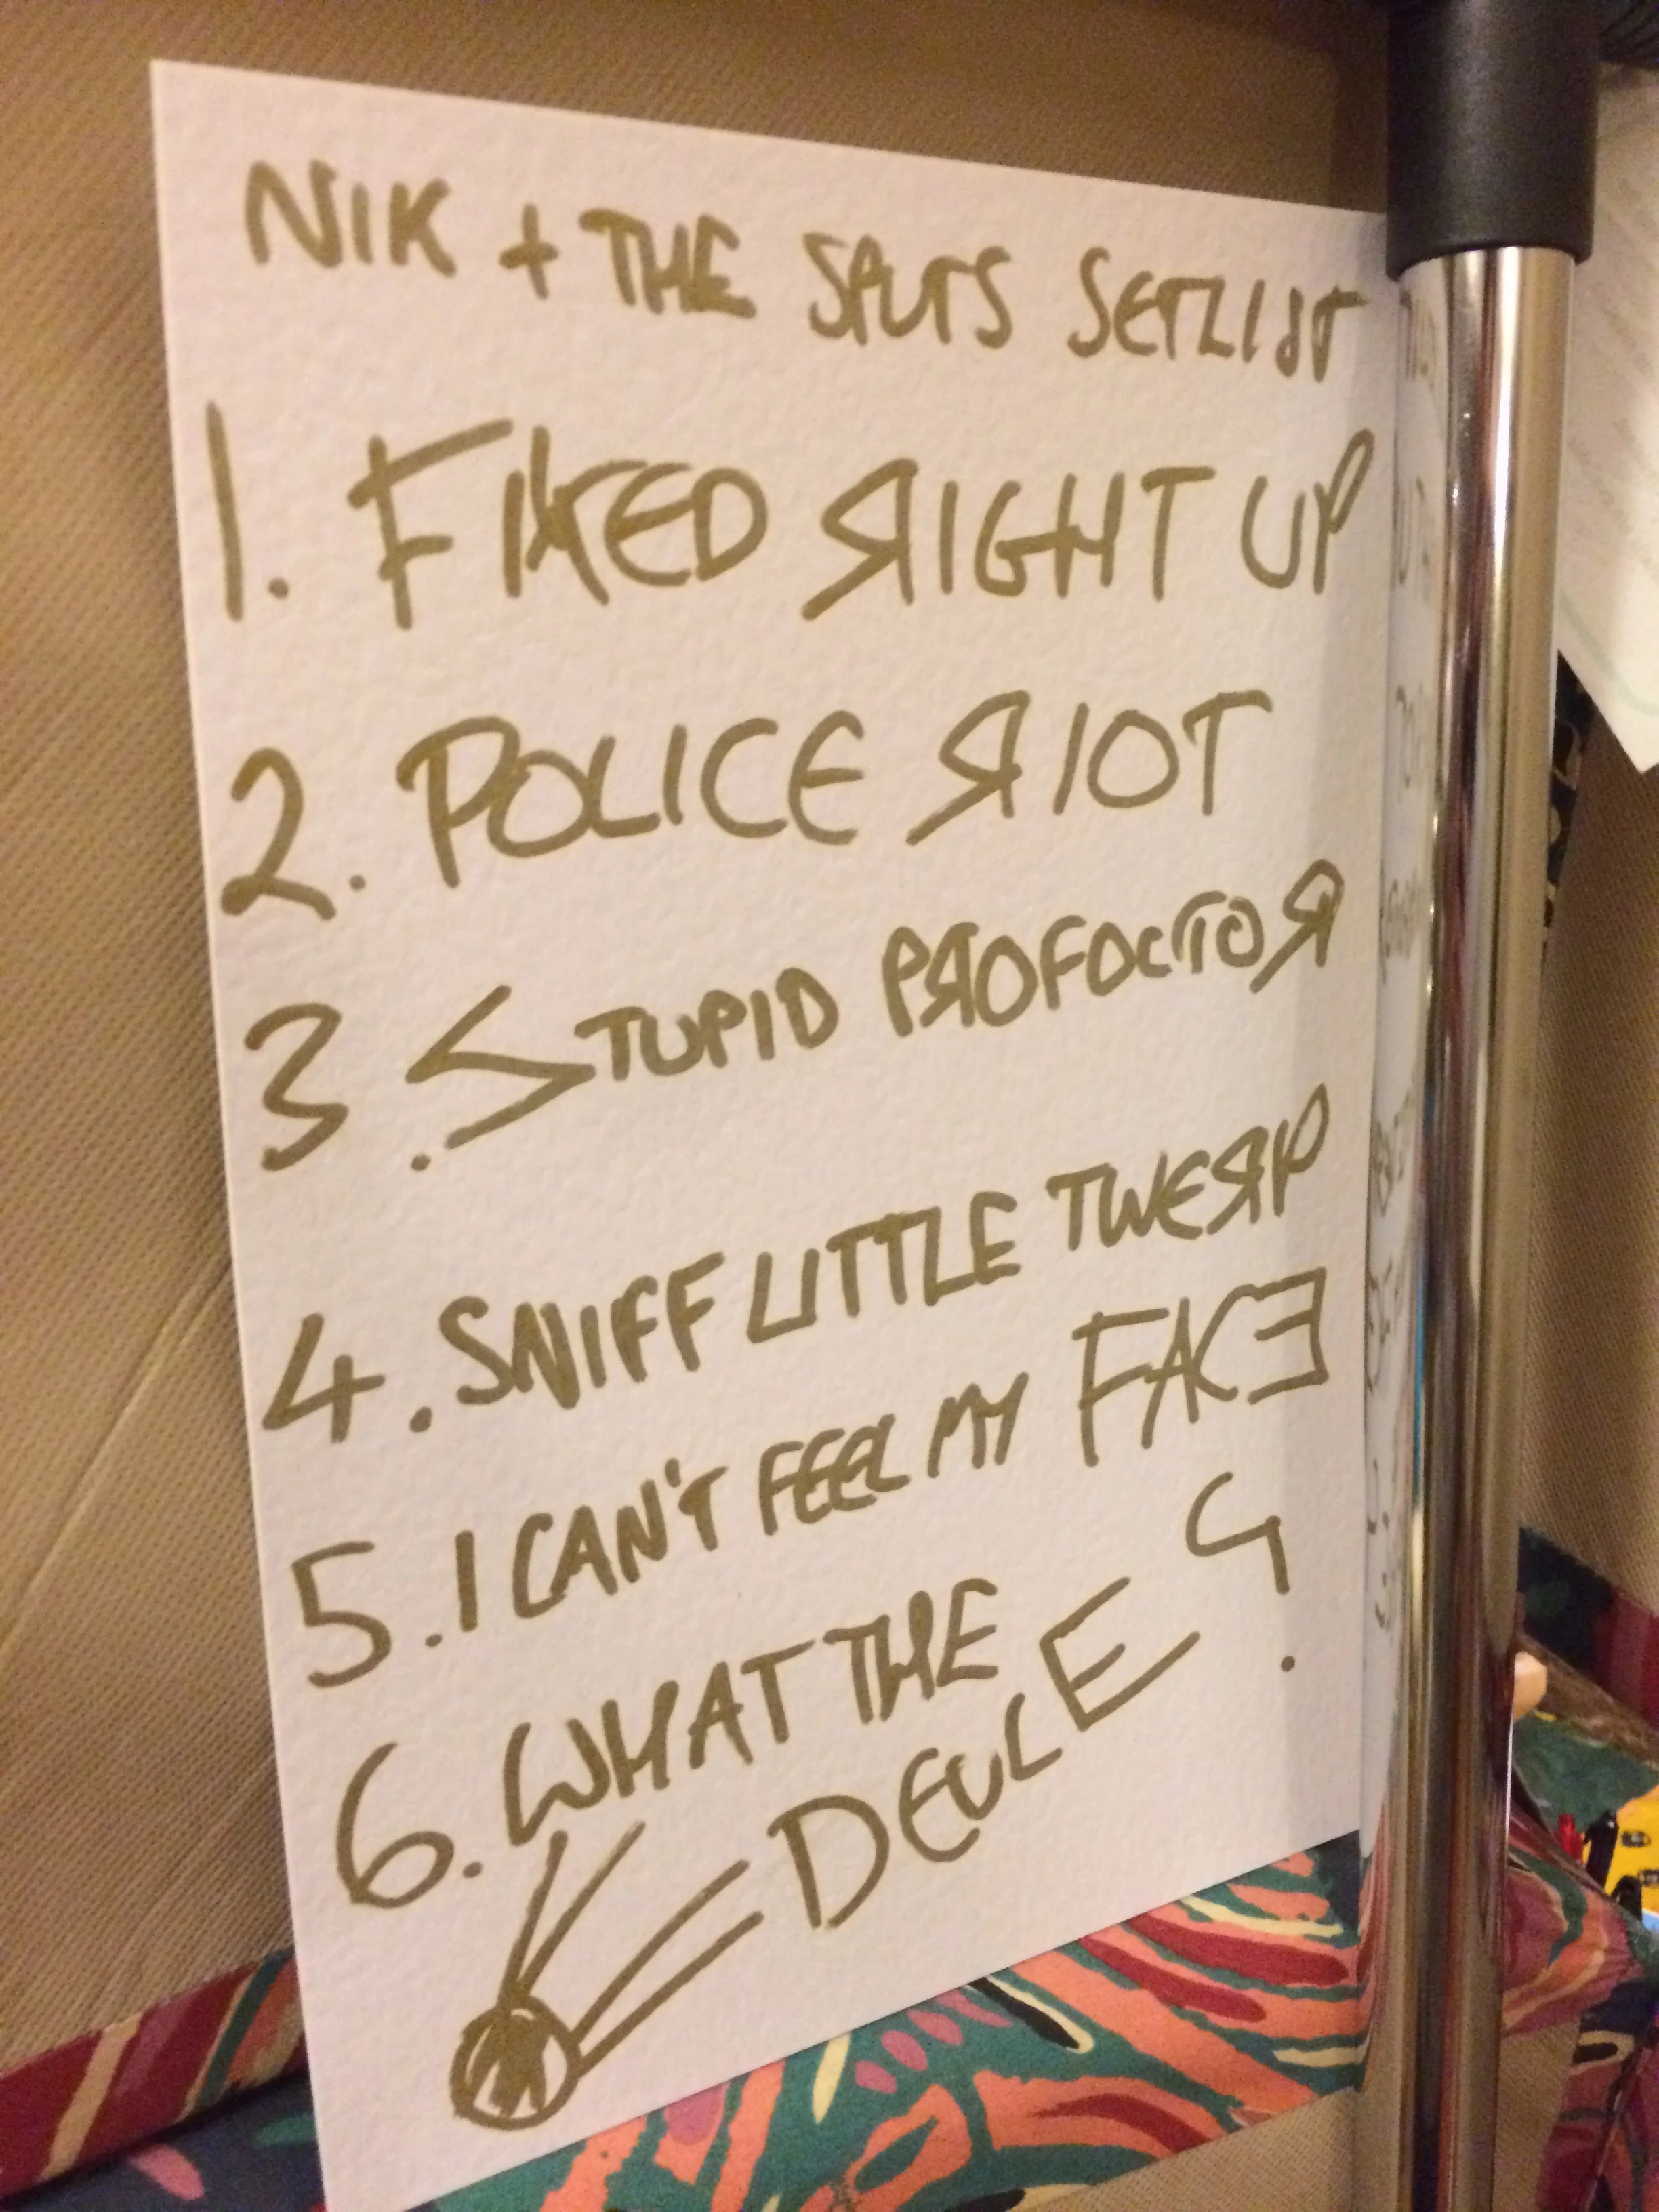 NIK + THE SPLITS SETLIST
1. FIXED RIGHT UP
2. POLICE RIOT
3. STUPID PROFOCTOR
4. SNIFF LITTLE TWERP
5. I CAN'T FEEL MY FACE
6. WHAT THE
DEUCE?